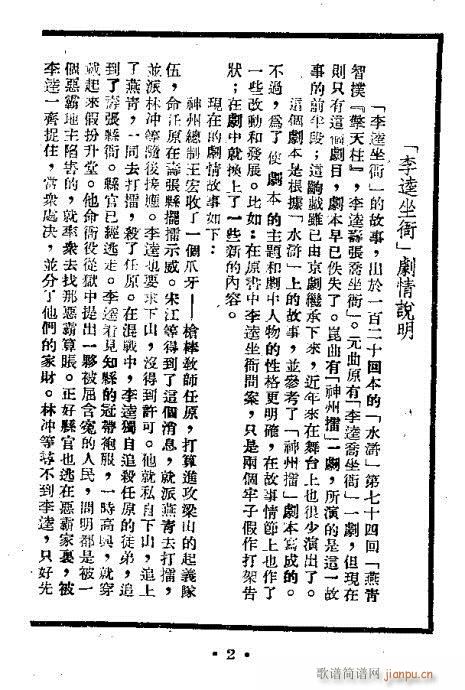 「李逵坐衙」劇情說明
「李逵坐衙」的故事，出於一百二十回本的「水滸」第七十四回「燕青
智撲『擎天柱』，李逵壽張喬坐衙」。元曲原有「李逵喬坐衙」一劇，但現在
則只有這個劇目，劇本早已佚失了。崑曲有「神州擂」一劇，所演的是這一故
事的前半段；這齣戲雖已由京劇繼承下來，近年來在舞台上也很少演出了。
這個劇本是根據「水滸」上的故事，並參考了「神州擂」劇本寫成的。
不過，爲了使劇本的主題和劇中人物的性格更明確，在故事情節上也作了
一些改動和發展。比如：在原書中李逵坐衙問案，只是兩個牢子假作打架告
狀；在劇中就換上了一些新的內容。
現在的劇情故事如下：
神州總制王宏收了一個爪牙——槍棒敎師任原，打算進攻梁山的起義隊
伍，命任原在壽張縣擺擂示威。宋江等得到了這個消息，就派燕青去打擂，
並派林冲等隨後接應。李逵也要求下山，沒得到許可。他就私自下山，追上
了燕青，一同去打擂，殺了任原。在混戰中，李逵獨自追殺任原的徒弟，追
到了壽張縣衙。縣官已經逃走。李逵看見知縣的冠帶袍服，一時高興，就穿
戴起來假扮升堂。他命衙役從獄中提出一夥被屈含寃的人民，問明都是被一
個惡霸地主陷害的，就率衆去找那惡霸算賬。正好縣官也逃在惡霸家裏，被
李逵一齊捉住，當衆處决，並分了他們的家財。林冲等尋不到李逵，只好先
• 2 •
歌谱简谱网
jianpu.cn